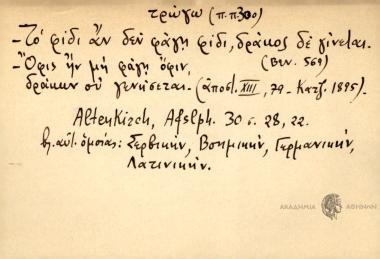 τρώγω (π.π300)
-Τὸ φίδι ἂν δὲν φάγῃ φίδι, δράκος δὲ γίνεται.
(Βεν. 569)
-Ὄφις ἢν μὴ φάγῃ ὄφιν,
δράκων οὐ γενήσεται. (ἀποστ. XIII, 79 - Κατζ. 1895).
Altenkirch, Afslph. 30 σ. 28, 22.
βλ. αὐτ. ὁμοίας: Σερβικήν, Βοημικήν, Γερμανικήν,
Λατινικήν.
ΑΚΑΔΗΜΙΑ ΑΘΗΝΩΝ